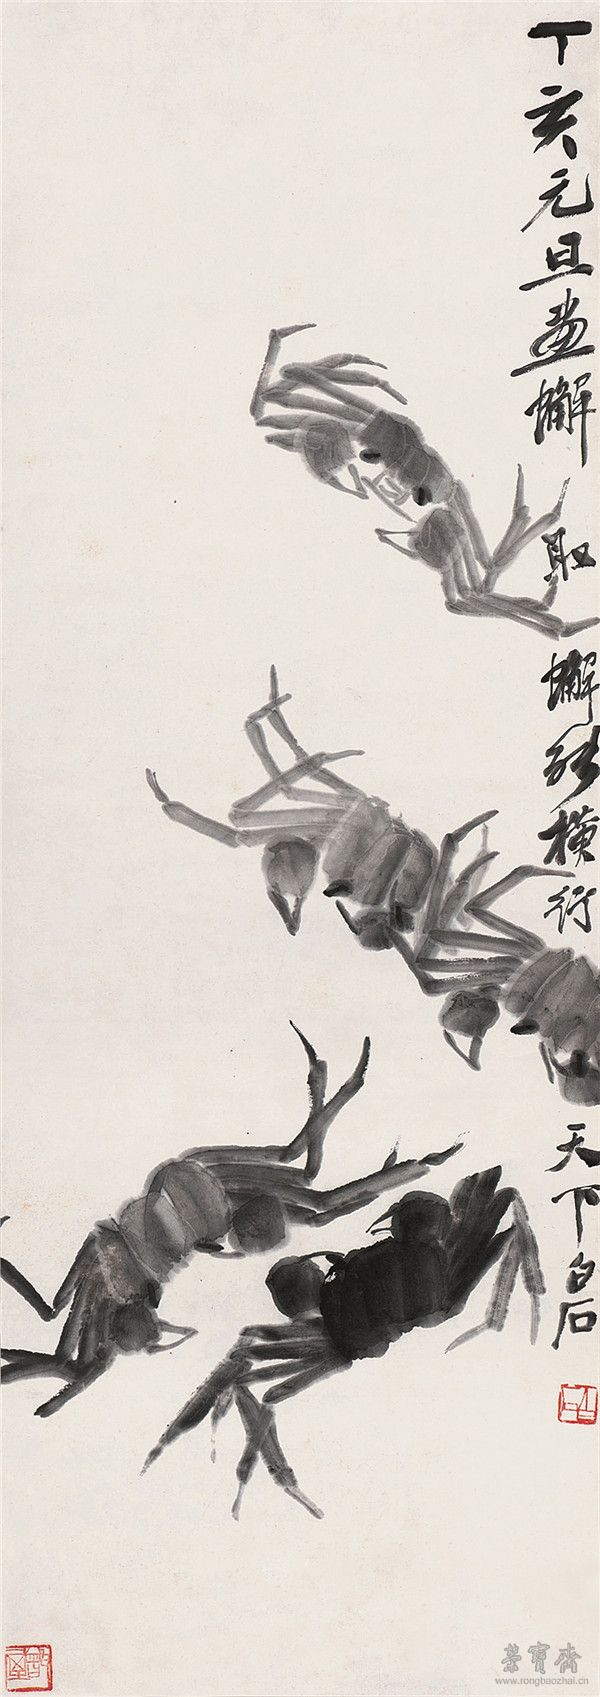 丁亥元旦畫蠏 取蠏能橫行 天下白石
榮寶齋
www.rongbaozhai.cn